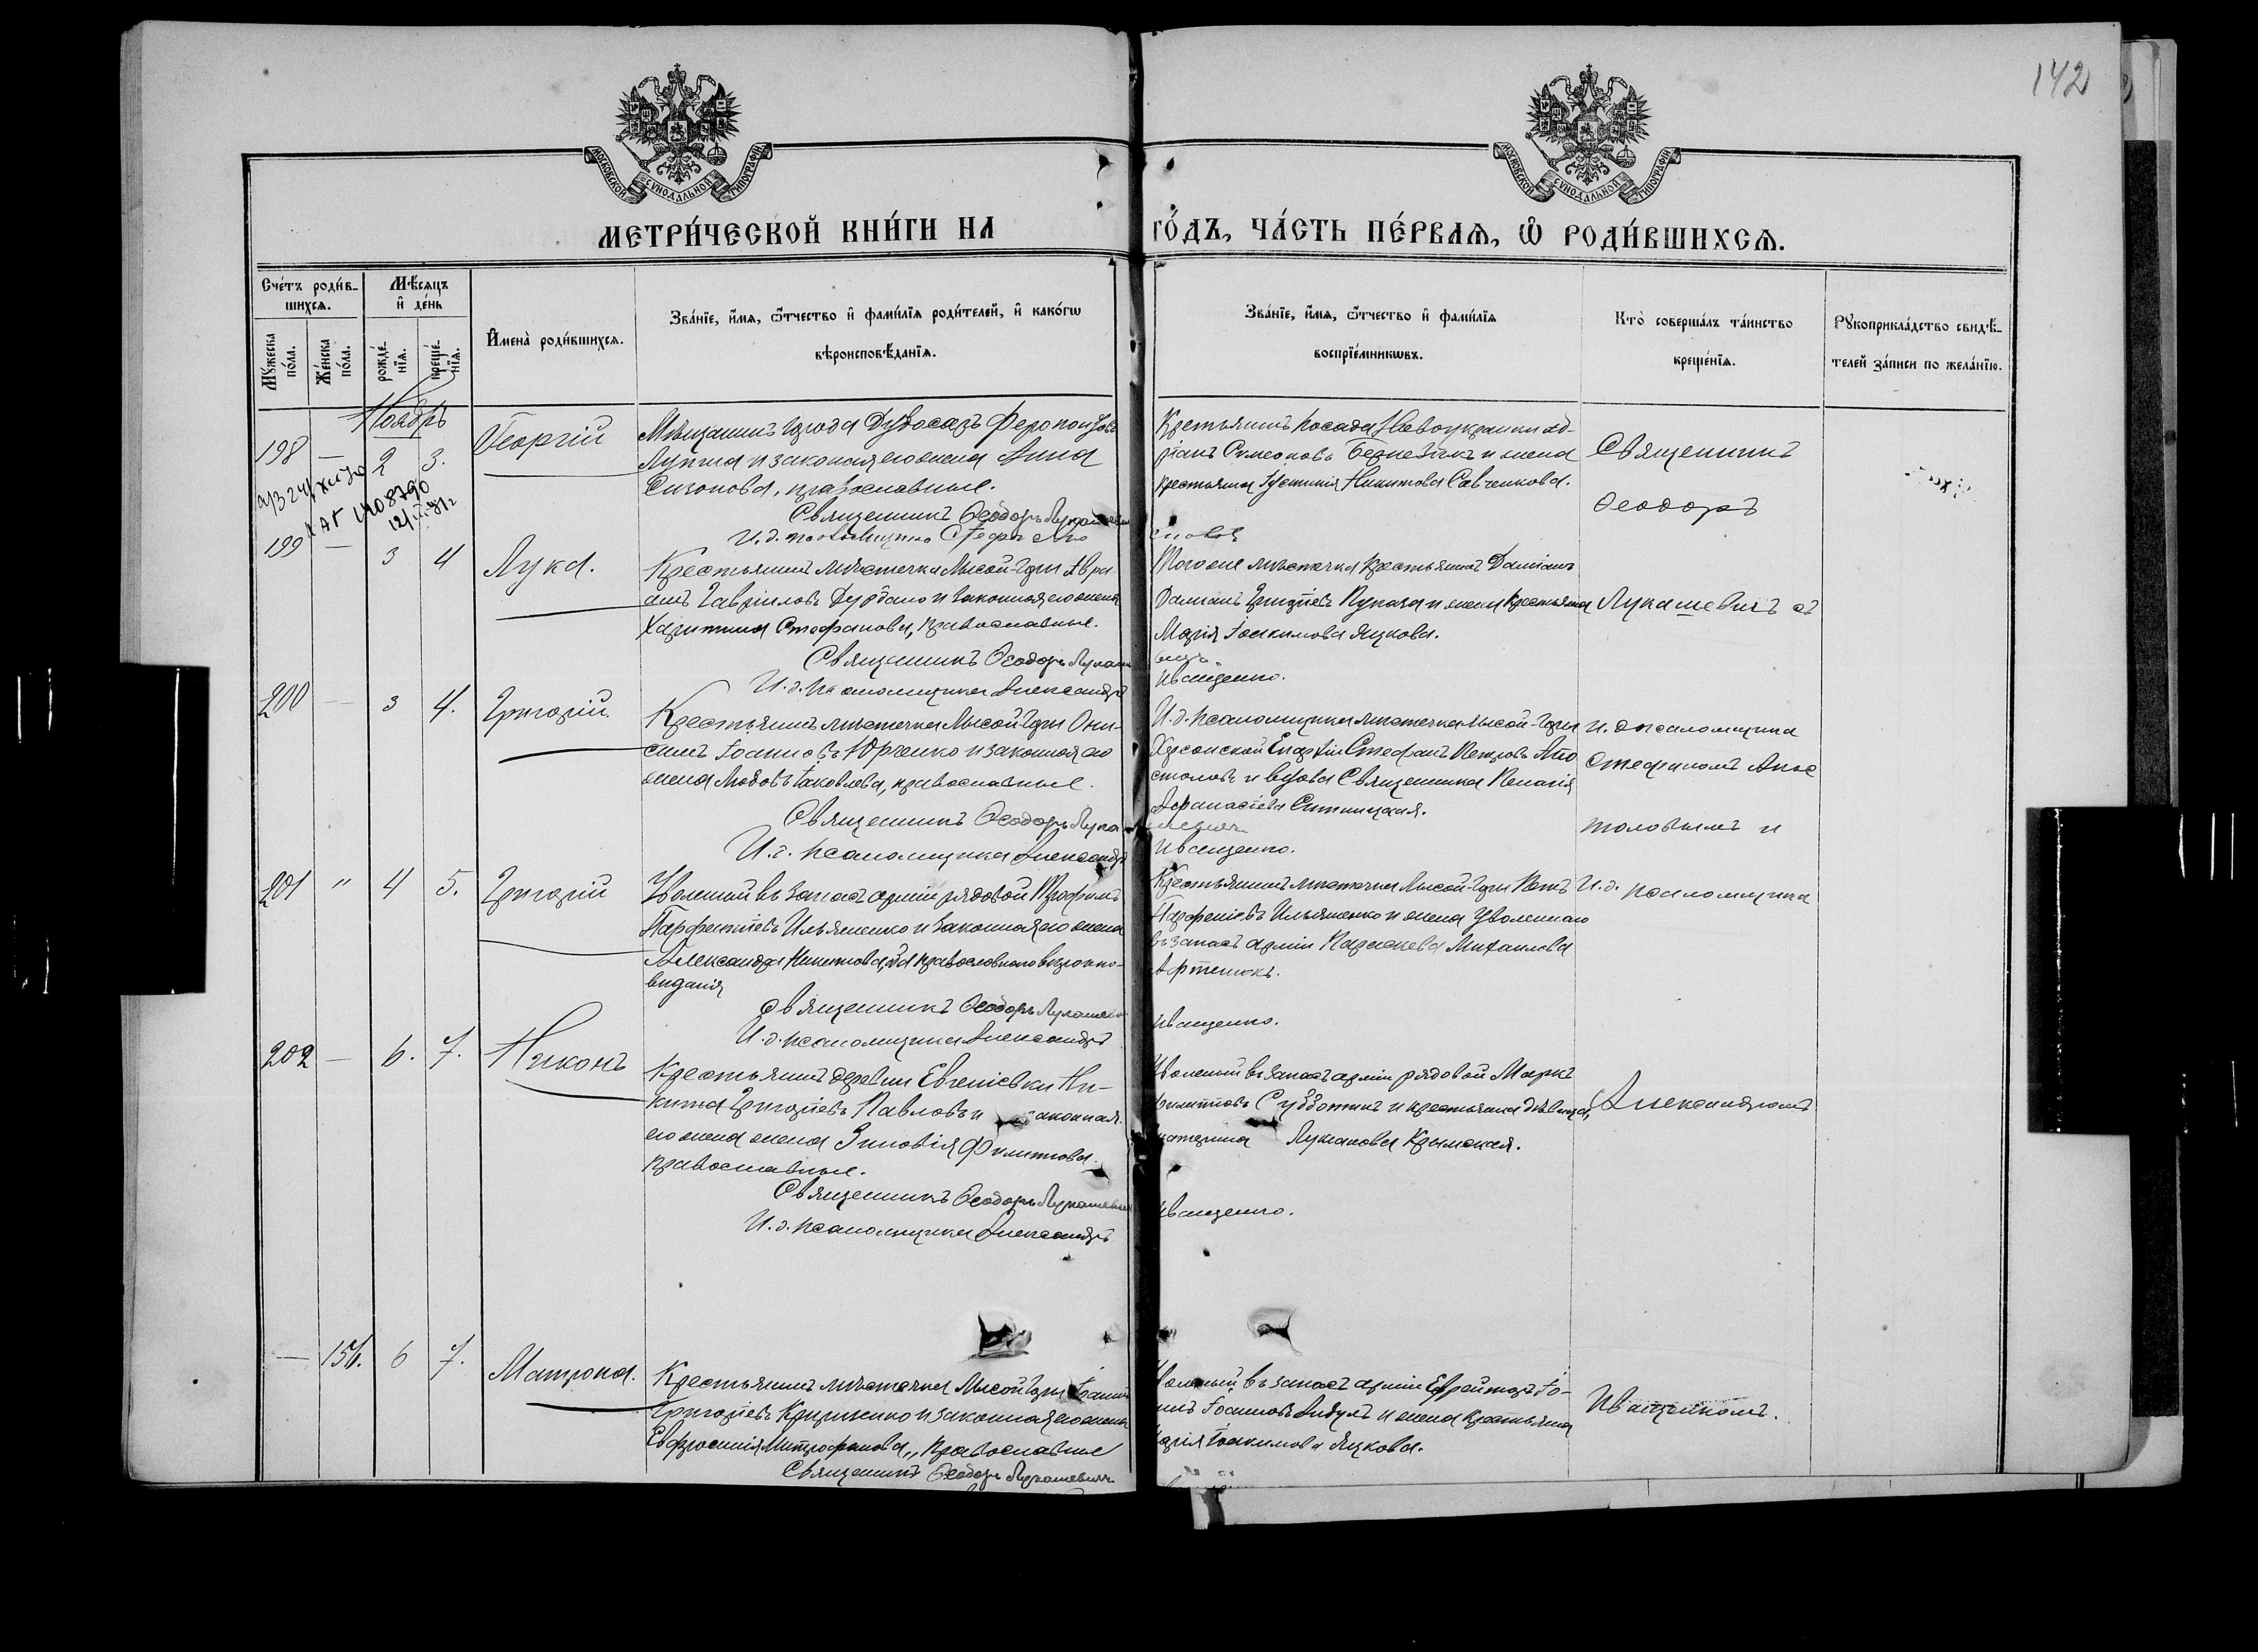 142
МОСКОВСКОЙ СѴНОДАЛЬНОЙ ТИПОГРАФІИ
МОСКОВСКОЙ СѴНОДАЛЬНОЙ ТИПОГРАФІИ
МЕТРИ́ЧЕСКОЙ КНИ́ГИ НА
ГО́ДЪ, ЧА́СТЬ ПЕ́РВАЯ, Ѡ҆ РОДИ́ВШИХСЯ.
Сче́тъ роди́в-
шихся.
Мѣ́сяцъ
и҆ де́нь
Мꙋ́жеска
по́ла.
Же́нска
по́ла.
рожде́-
нїя.
креще́-
нїя.
И҆мена̀ роди́вшихся.
Зва́нїе, и҆́мя, ѻ҆́тчество и҆ фами́лїя роди́телей, и҆ како́гѡ
вѣроисповѣ́данїя.
Зва́нїе, и҆́мя, ѻ҆́тчество и҆ фами́лїя
воспрїе́мникѡвъ.
Кто̀ соверша́лъ та́инство
креще́нїя.
Рꙋкоприкла́дство свидѣ́-
телей за́писи по жела́нїю.
Ноябрь
198 — 2 3.
Георгій
Мѣщанинъ города Дубосаръ Феропонтовъ
Лупша и законная его жена Анна
Сизонова, православные.
Священникъ Ѳеодоръ Лукашевичъ
И. д. псаломщика Стефанъ Апо
Крестьянинъ посада Новоукраинки Ад-
ріанъ Симеоновъ и жена
крестьянина Іустинія Никитова Савченкова.
столовъ
Священникъ
Ѳеодоръ
199 — 3 4
Лука.
Крестьянинъ мѣстечка Лысой-Горы Авра-
амъ Гавріиловъ и законная его жена
Харитина Стефанова, православные.
Священникъ Ѳеодоръ Лукаше
И. д. псаломщика Александръ
Того же мѣстечка крестьянинъ Даміанъ
Даміанъ Григорьевъ и жена крестьянина
Марія Іоакимова Яцкова.
вичъ
Иващенко.
Лукашевичъ съ
200 — 3 4.
Григорій.
Крестьянинъ мѣстечка Лысой-Горы Они-
симъ Іоанновъ Юрченко и законная его
жена Любовь Іаковлева, православные.
Священникъ Ѳеодоръ Лука
И. д. псаломщика Александръ
И. д. псаломщика мѣстечка Лысой-Горы
Херсонской Епархіи Стефанъ Петровъ Апо
столовъ и вдова Священника Пелагія
Аѳанасіева Ситницкая.
шевичъ
Иващенко.
и. д. псаломщика
Стефаномъ Апос
толовымъ и
201 " 4 5.
Григорій
Уволенный въ запасъ арміи рядовой Трофимъ
Парфеніевъ Ильяшенко и законная его жена
Александра Никитова, оба православнаго вѣроиспо-
веданія
Священникъ Ѳеодоръ Лукашевичъ
И. д. псаломщика Александръ
Крестьянинъ мѣстечка Лысой-Горы Петръ
Парфеніевъ Ильяшенко и жена уволеннаго
въ запасъ арміи Параскева Михаилова
Артемюкъ.
Иващенко.
И. д. псаломщика
202 — 6. 7.
Никонъ
Крестьянинъ деревни Евгеніевки Ни-
кита Григорьевъ Павловъ и законная
его жена жена Зиновія Филиппова.
православные.
Священникъ Ѳеодоръ Лукашевичъ
И. д. псаломщика Александръ
Уволенный въ запасъ арміи рядовой Маркъ
Филипповъ Субботинъ и крестьянка дѣвица,
Екатерина Лукіанова Крымская.
Иващенко.
Александромъ
— 156. 6 7.
Матрона.
Крестьянинъ мѣстечка Лысой Горы Іоаннъ
Григорьевъ и законная его жена
Евфросинія Митрофанова, православные
Священникъ Ѳеодоръ Лукашевичъ
Уволенный въ запасъ арміи Ефрейторъ Іо-
аннъ Іоанновъ и жена крестьянина
Марія Іоакимова Яцкова.
Иващенкомъ.